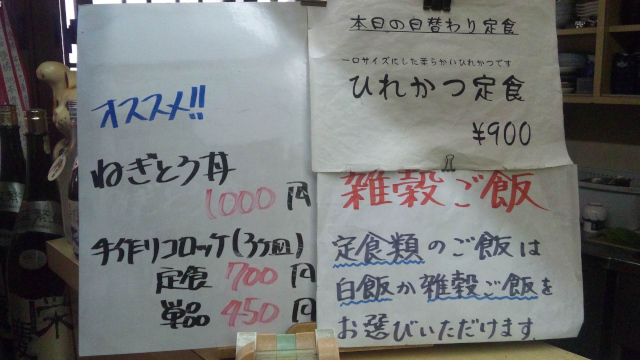 オススメ!!
ねぎとろ丼
1000円
手作りコロッケ(3ヶ皿)
定食 700円
単品 450円
本日の日替わり定食
一口サイズにした柔らかいひれかつです
ひれかつ定食
¥900
雑穀ご飯
定食類のご飯は
白飯か雑穀ご飯を
お選びいただけます